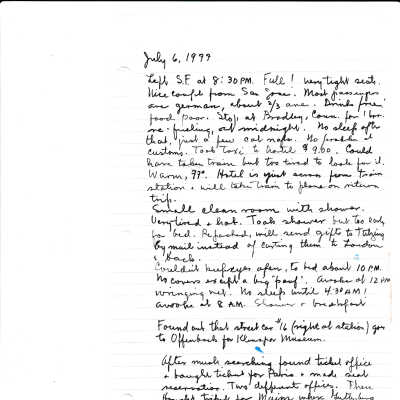 July 6, 1999
Left S.F. at 8:30 PM. Full! very tight seats.
Nice couple from San Jose. Most passengers
are german, about 2/3 are. Drinks free
food poor. Stop, at Bradley, Conn. for 1 hr.
re-fueling, at midnight. No sleep after
that, just a few cat naps. No problem
customs. Took taxi to hotel $9.00. Could
have taken train but too tired to look for it.
Warm, 77°. Hotel is just across from train
station & will take train to plane on return
trip.
Small clean room with shower.
Very tired & hot. Took shower but too early
for bed. Repacked, will send gifts to
by mail instead of carting them to London
& back.
Couldn't keep eyes open, to bed about 10 PM.
No covers except a big "pouf". Awoke at 12 PM
wringing wet. No sleep until 4:30 AM!
awoke at 8 AM. Shower & breakfast
Found out that street car #16 (right at station) goes
to Offenbach for Klingspor Museum.
After much searching found ticket office
& bought ticket for Paris & made seat
reservation. Two different offices. Then
bought ticket for Mainz where Gutenberg